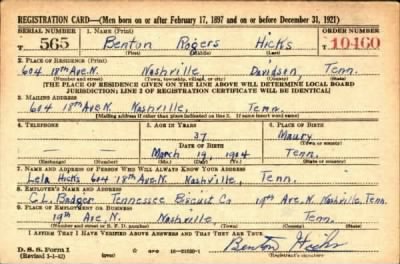 REGISTRATION CARD—(Men born on or after February 17, 1897 and on or before December 31, 1921)
SERIAL NUMBER 1. NAME (Print) ORDER NUMBER
T 565 Benton Rogers Hicks T 10460
(First) (Middle) (Last)
2. PLACE OF RESIDENCE (Print)
604 18th Ave. N. Nashville Davidson, Tenn.
(Number and street) (Town, township, village, or city) (County) (State)
[THE PLACE OF RESIDENCE GIVEN ON THE LINE ABOVE WILL DETERMINE LOCAL BOARD
JURISDICTION; LINE 2 OF REGISTRATION CERTIFICATE WILL BE IDENTICAL]
3. MAILING ADDRESS
604 18th Ave N. Nashville, Tenn.
[Mailing address if other than place indicated on line 2. If same insert word same]
4. TELEPHONE 5. AGE IN YEARS 6. PLACE OF BIRTH
37 Maury
DATE OF BIRTH (Town or county)
March 19, 1904 Tenn.
(Exchange) (Number) (Mo.) (Day) (Yr.) (State or country)
7. NAME AND ADDRESS OF PERSON WHO WILL ALWAYS KNOW YOUR ADDRESS
Lela Hicks 604 18th Ave. N. Nashville, Tenn.
8. EMPLOYER'S NAME AND ADDRESS
C. L. Badger Tennessee Biscuit Co 19th Ave. N. Nashville, Tenn.
9. PLACE OF EMPLOYMENT OR BUSINESS
19th Ave. N. Nashville Tenn.
(Number and street or R. F. D. number) (Town) (County) (State)
I AFFIRM THAT I HAVE VERIFIED ABOVE ANSWERS AND THAT THEY ARE TRUE.
D. S. S. Form 1
(Revised 1-1-42) (over) Benton Hicks
(Registrant's signature)